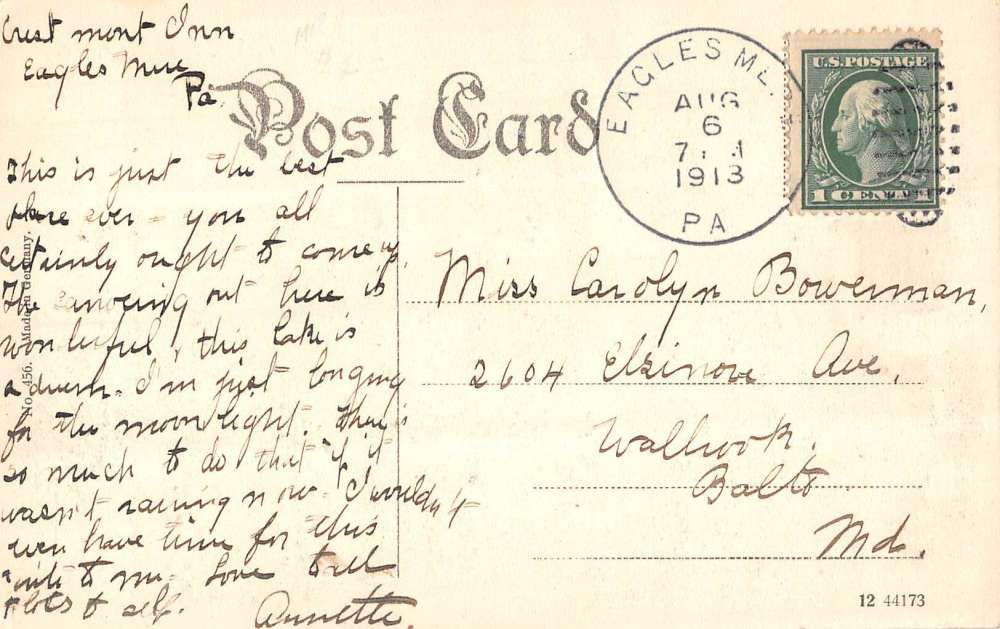 Crest mont Inn
Eagles Mere
Pa.
Post Card
This is just the best
place ever - you all
certainly ought to come up.
The canoeing out here is
wonderful, this lake is
a dream. I'm just longing
for the moonlight. There's
so much to do that if it
wasn't raining now I wouldn't
even have time for this
write to me. Love to all
& lots to self.
Annette.
No. 456. Made in Germany.
EAGLES ME.
AUG
6
7
1913
PA
U.S. POSTAGE
1 CENT
Miss Carolyn Bowerman,
2604 Elsinore Ave.
Walbrook.
Balto
Md.
12 44173